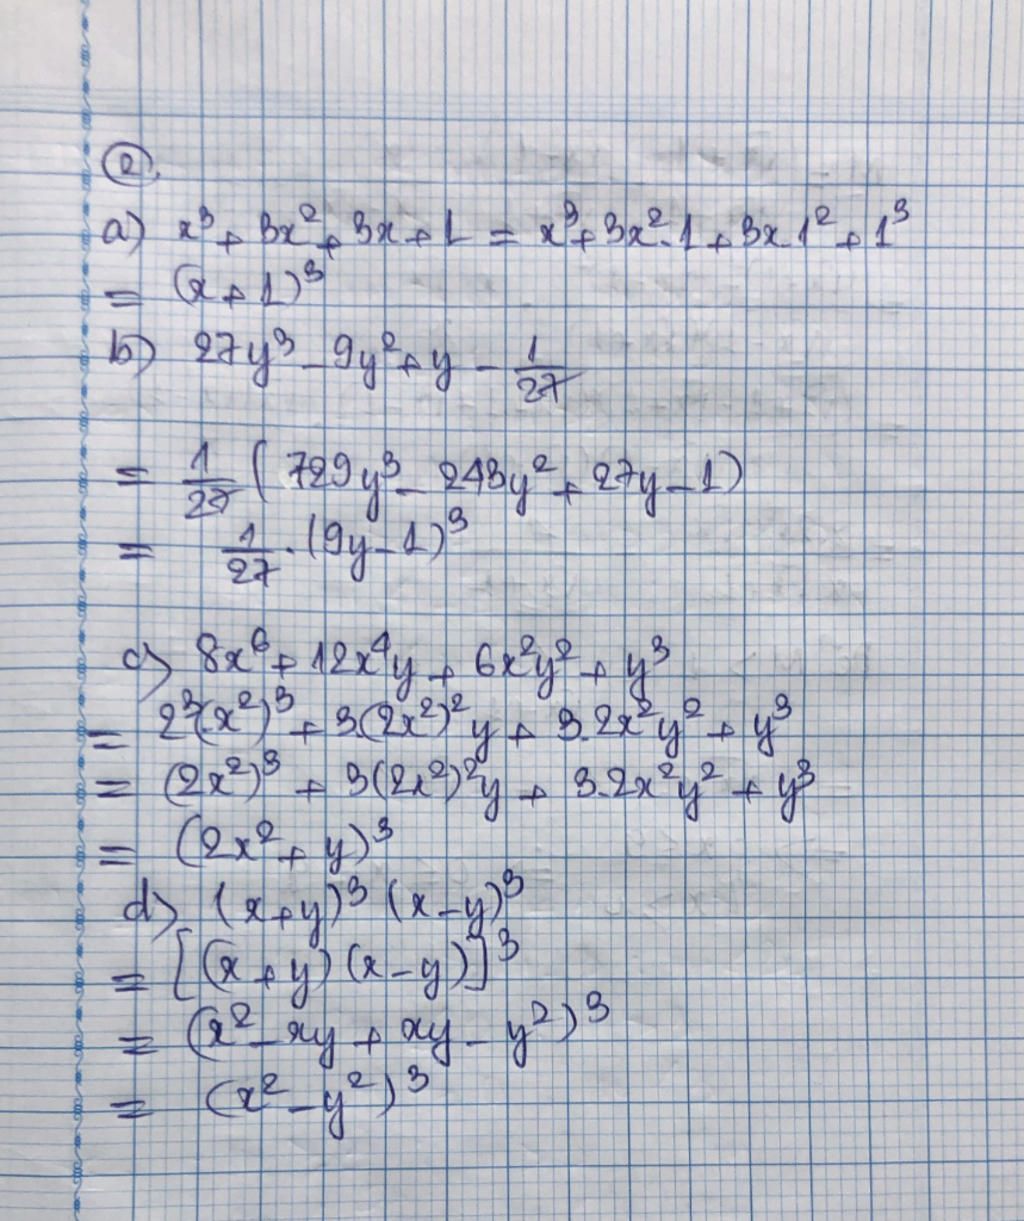 ②.
a) x³ + 3x² + 3x + 1 = x³ + 3x².1 + 3x.1² + 1³
= (x + 1)³
b) 27y³ - 9y² + y - 1/27
= 1/27 (729y³ - 243y² + 27y - 1)
= 1/27 . (9y - 1)³
c) 8x⁶ + 12x⁴y + 6x²y² + y³
= 2³(x²)³ + 3(2x²)²y + 3.2x²y² + y³
= (2x²)³ + 3(2x²)²y + 3.2x²y² + y³
= (2x² + y)³
d) (x + y)³ (x - y)³
= [(x + y) (x - y)]³
= (x² - xy + xy - y²)³
= (x² - y²)³